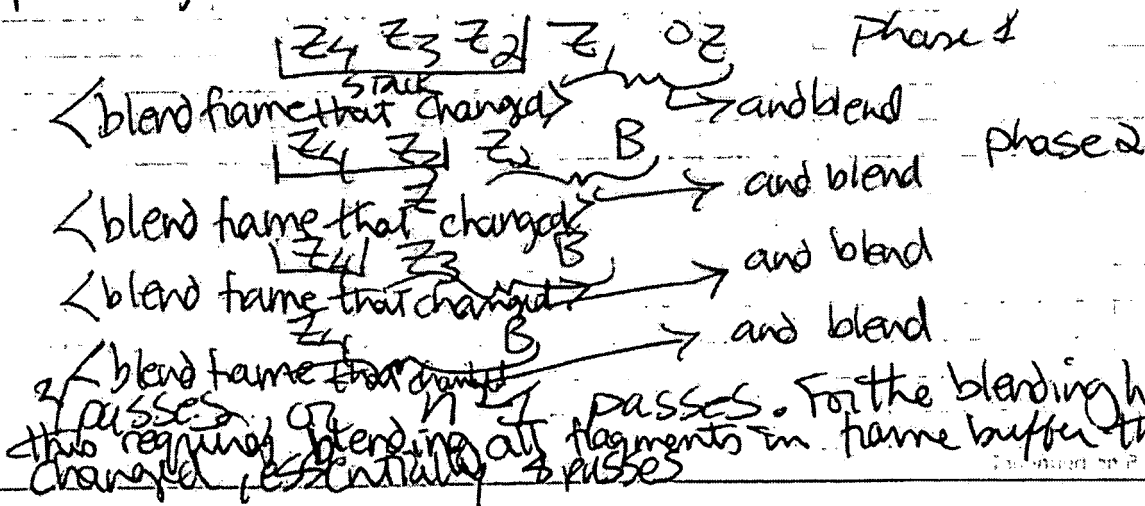 Z4 Z3 Z2 Z1 OZ phase 1
stack
<blend frame that changed> and blend
Z4 Z3 Z2 B phase 2
<blend frame that changed> and blend
Z4 Z3 B
<blend frame that changed. and blend
Z4 B
<blend frame that changed and blend
passes or n-1 passes. For the blending h
this requires blending all fragments in frame buffer th
changed, essentially 8 passes